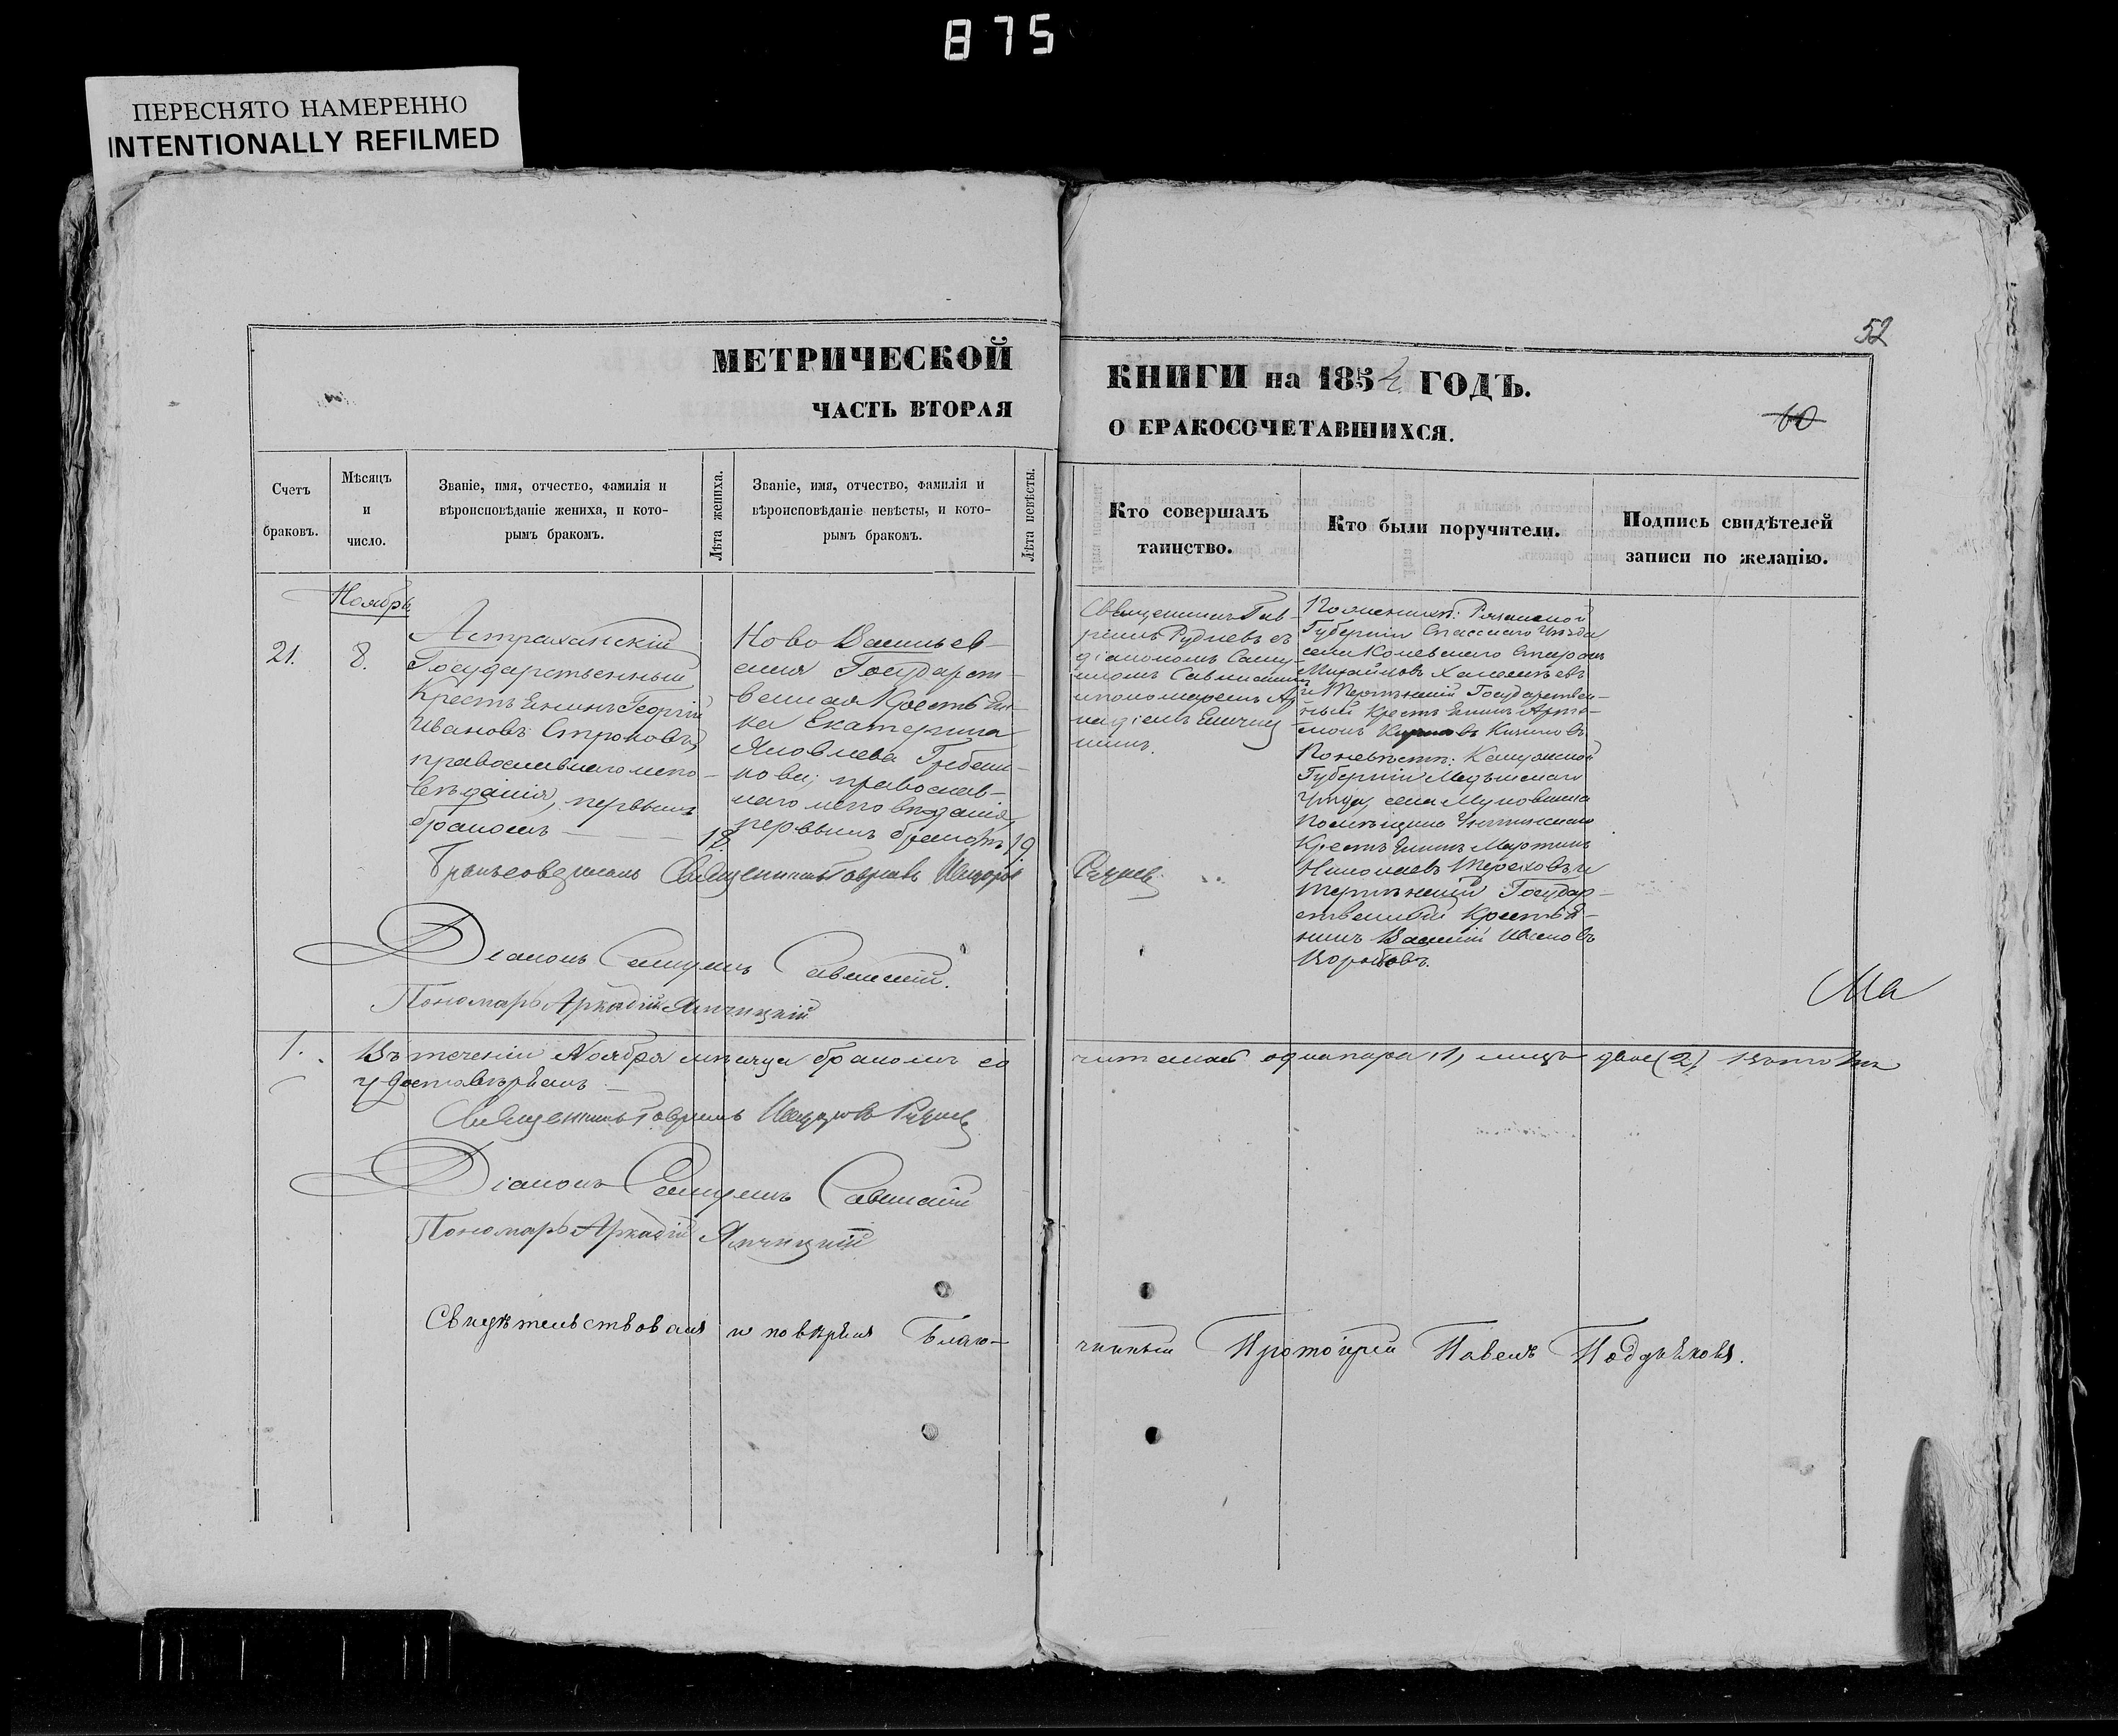 875
ПЕРЕСНЯТО НАМЕРЕННО
INTENTIONALLY REFILMED
52
МЕТРИЧЕСКОЙ
ЧАСТЬ ВТОРАЯ
КНИГИ на 1854 ГОДЪ.
О БРАКОСОЧЕТАВШИХСЯ.
60
Счетъ
браковъ.
Мѣсяцъ
и
число.
Званіе, имя, отчество, фамилія и
вѣроисповѣданіе жениха, и кото-
рымъ бракомъ.
Лѣта жениха.
Званіе, имя, отчество, фамилія и
вѣроисповѣданіе невѣсты, и кото-
рымъ бракомъ.
Лѣта невѣсты.
Кто совершалъ
таинство.
Кто были поручители.
Подпись свидѣтелей
записи по желанію.
Ноябрь
21.
8.
Астраханскій
Государственный
Крестьянинъ Георгій
Ивановъ Строковъ,
православнаго испо-
вѣданія, первымъ
бракомъ
18.
Ново Васильев-
ская Государст-
венная Крестьян-
ка Екатерина
Яковлева Гребен-
нова; православ-
наго исповѣданія,
первымъ бракомъ
19.
Священникъ Гав-
ріилъ Рудневъ съ
діакономъ Саму-
иломъ Савинскимъ
и пономаремъ Ар-
кадіемъ
По женихѣ: Рязанской
Губерніи Спасскаго Уѣзда
села
Михайловъ
и Государствен-
ный Крестьянинъ Арта-
монъ
По невѣстѣ: Калужской
Губерніи Медынскаго
Уѣзда, села
Помѣщика
Крестьянинъ Мартинъ
Николаевъ Тереховъ и
Государ-
ственный Крестья-
нинъ Василій Ивановъ
Воробьовъ.
Бракъ совершалъ Священникъ Гавріилъ
Рудневъ
Діаконъ Самуилъ Савинскій.
Пономарь Аркадій Ямчицкій
Ма
1.
Въ теченіи Ноября мѣсяца бракомъ со
читалась одна пара (1) лицъ двое (2) Въ томъ
удостовѣряемъ
Священникъ Гавріилъ Рудневъ
Діаконъ Самуилъ Савинскій
Пономарь Аркадій Ямчицкій
Свидѣтельствовалъ и повѣрялъ Благо-
чинный Протоіерей Павелъ Поддьяковъ.